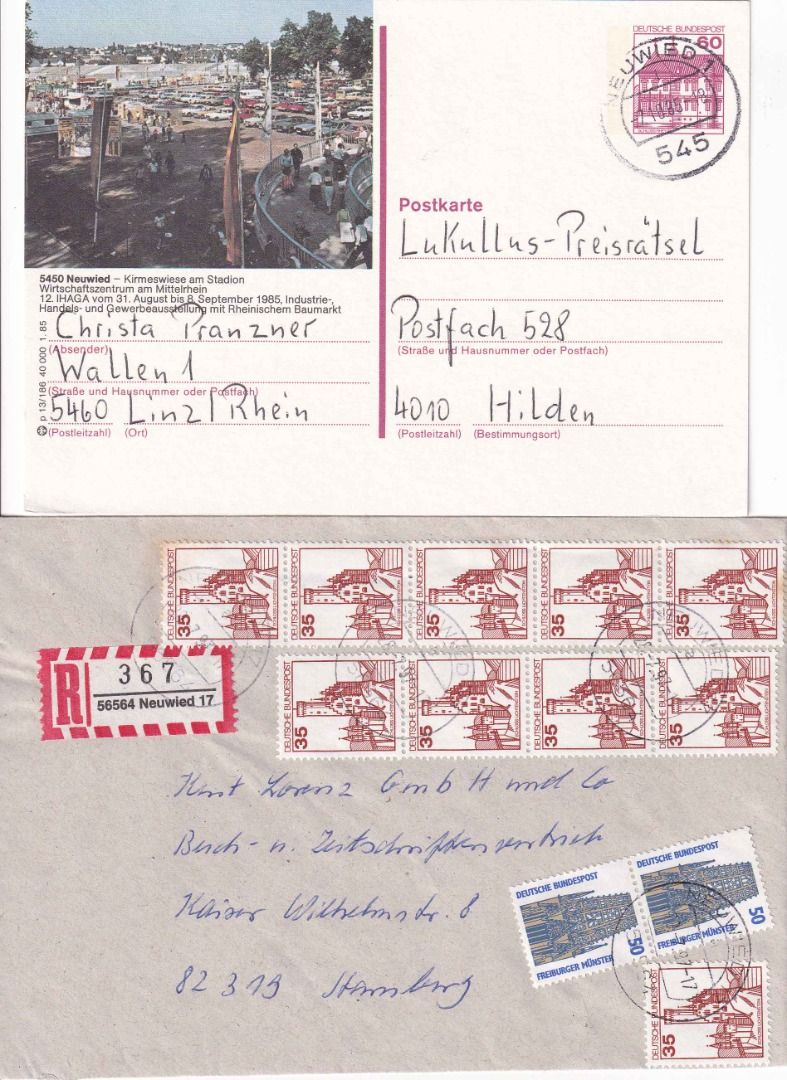 DEUTSCHE BUNDESPOST
60
NEUWIED 1
545
Postkarte
Lukullus-Preisrätsel
5450 Neuwied – Kirmeswiese am Stadion
Wirtschaftszentrum am Mittelrhein
12. IHAGA vom 31. August bis 8. September 1985, Industrie-,
Handels- und Gewerbeausstellung mit Rheinischem Baumarkt
Christa Pranzner
(Absender)
Wallen 1
(Straße und Hausnummer oder Postfach)
5460 Linz/Rhein
(Postleitzahl) (Ort)
p 13/186 40 000 1.85
Postfach 528
(Straße und Hausnummer oder Postfach)
4010 Hilden
(Postleitzahl) (Bestimmungsort)
DEUTSCHE BUNDESPOST 35
DEUTSCHE BUNDESPOST 35
DEUTSCHE BUNDESPOST 35
DEUTSCHE BUNDESPOST 35
DEUTSCHE BUNDESPOST 35
R
367
56564 Neuwied 17
DEUTSCHE BUNDESPOST 35
DEUTSCHE BUNDESPOST 35
DEUTSCHE BUNDESPOST 35
DEUTSCHE BUNDESPOST 35
Kurt Lorenz GmbH und Co
Buch- u. Zeitschriftenvertrieb
Kaiser Wilhelmstr. 8
82319 Starnberg
DEUTSCHE BUNDESPOST
50
FREIBURGER MÜNSTER
DEUTSCHE BUNDESPOST
50
FREIBURGER MÜNSTER
DEUTSCHE BUNDESPOST 35